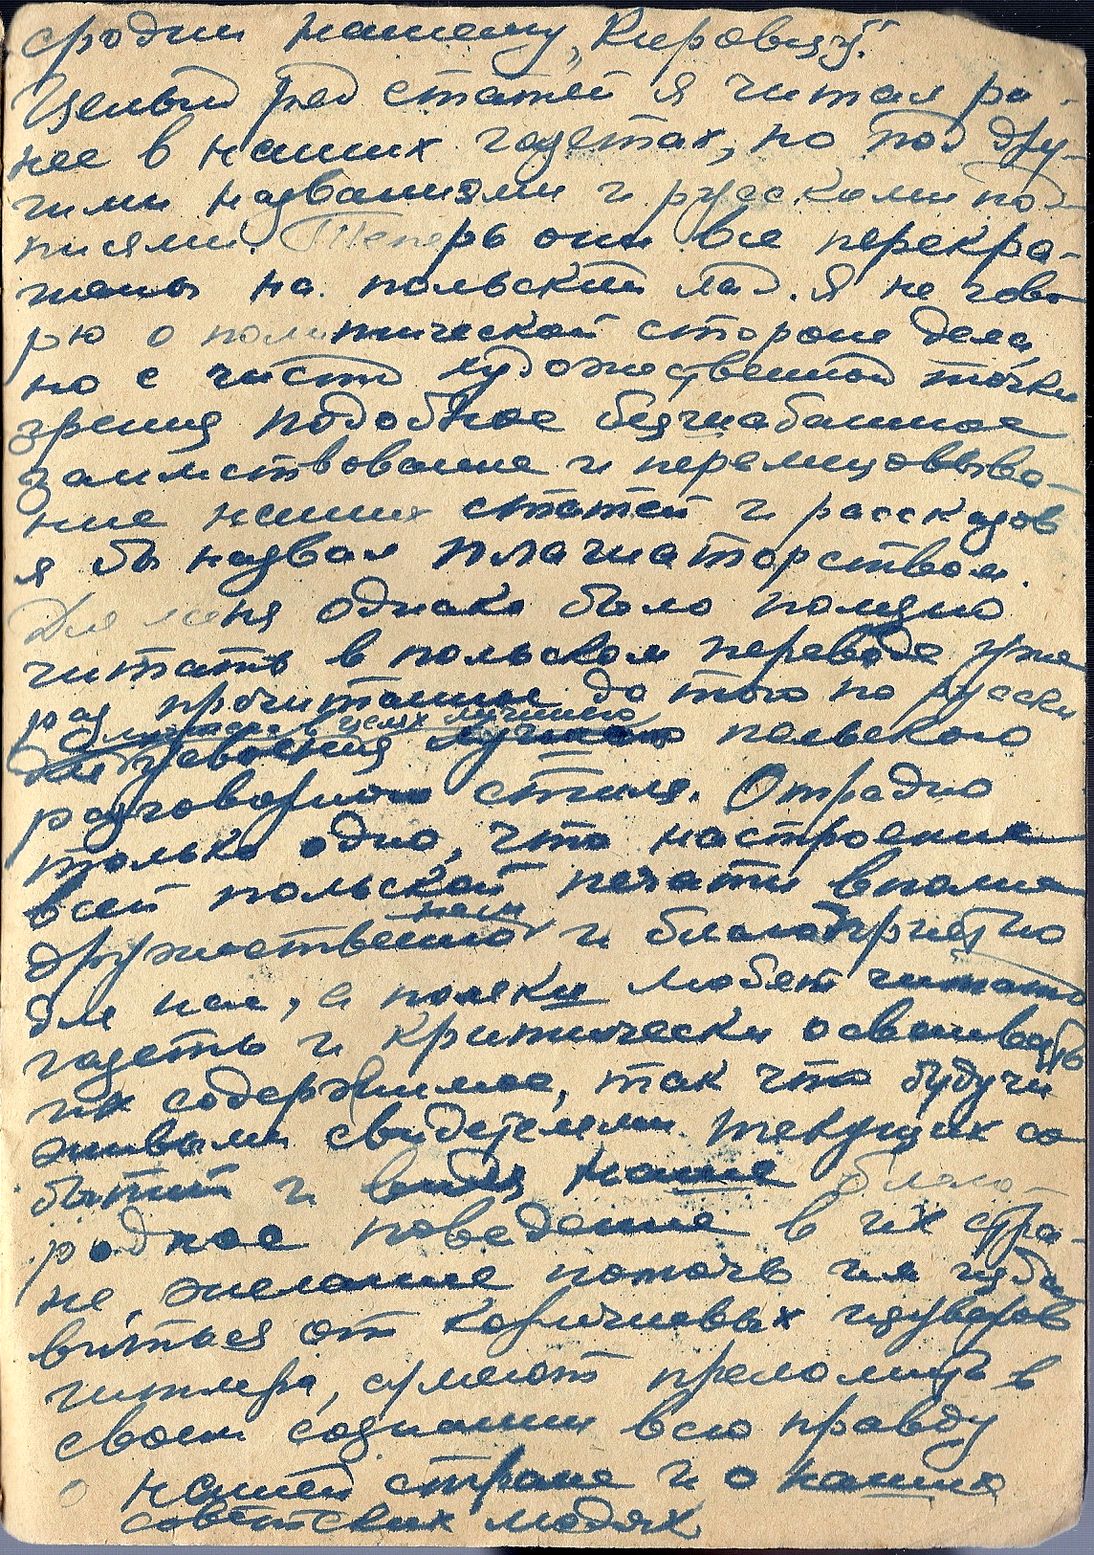 сродни нашему „Кировцу“.
Целый ряд статей я читал ра-
нее в наших газетах, но под дру-
гими названиями и русскими под-
писями. Теперь они все перекра-
шены на польский лад. Я не гово-
рю о политической стороне дела,
но с чисто художественной точки
зрения подобное бесшабашное
заимствование и перелицовыва-
ние наших статей и рассказов
я бы назвал плагиаторством.
Для меня однако было полезно
читать в польском переводе уже
раз прочитанное до того по русски
в целях лучшего
для усвоения лучшего польского
разговорного стиля. Отрадно
только одно, что настроение
всей польской печати вполне
нам
дружественно и благоприятно
для нас, а поляки любят читать
газеты и критически осваивать
их содержимое, так что будучи
живыми свидетелями текущих со-
бытий и видя наше благо-
родное поведение в их стра-
не, желание помочь им изба-
виться от коричневых изуверов
гитлера, сумеют преломить в
своем сознании всю правду
о нашей стране и о наших
советских людях